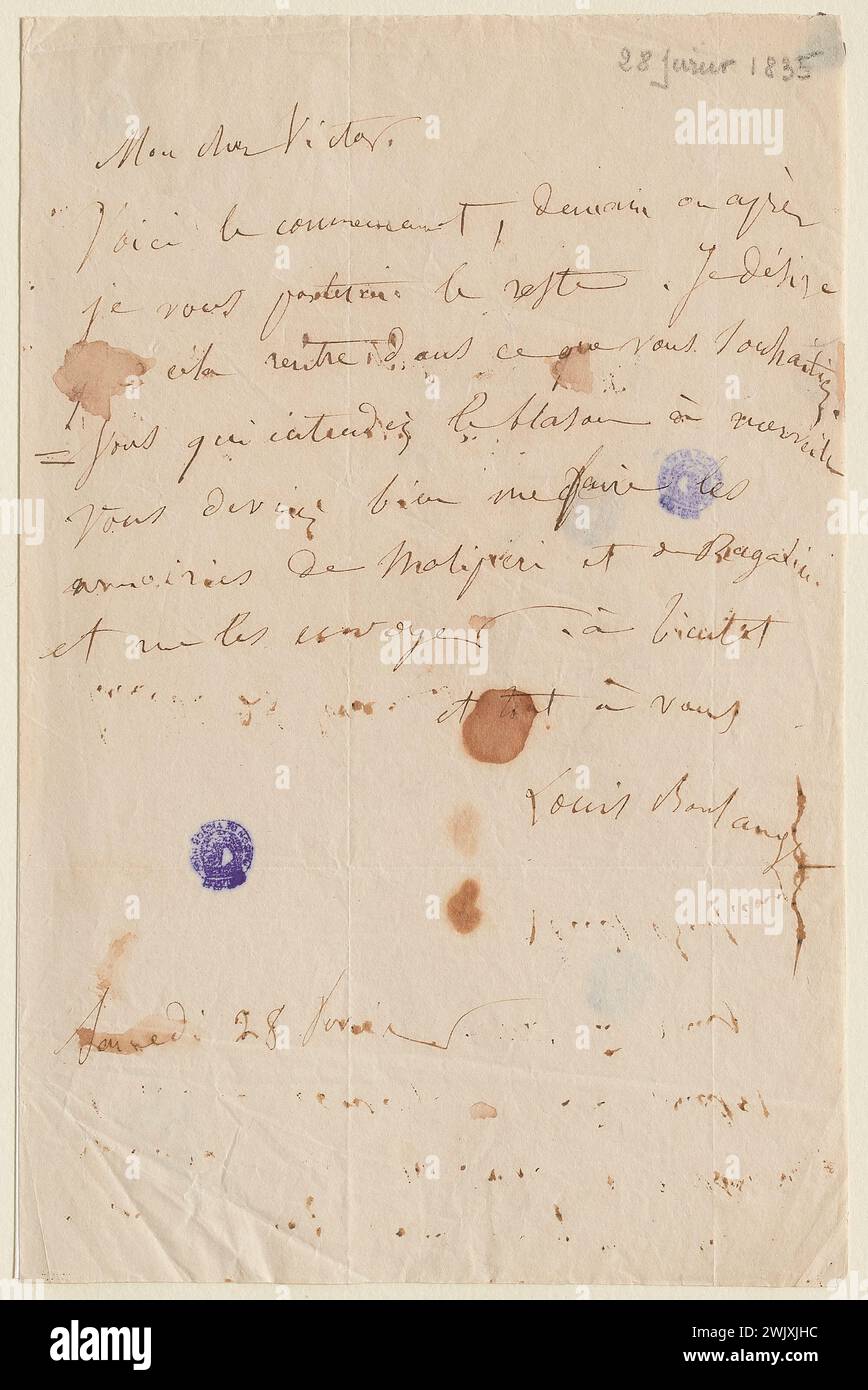 28 février 1835
Mon cher Victor.
Voici le commencement, demain ou après
je vous porterai le reste. Je désire
cela rentre dans ce que vous souhaitiez.
= Vous qui entendez le blason à merveille
Vous devriez bien me faire les
armoiries de Malipieri et de Bragadini.
et me les envoyer. à bientot
et tout à vous
Louis Boulanger
Samedi 28 février
alamy
Image ID: 2WJXJHC
www.alamy.com